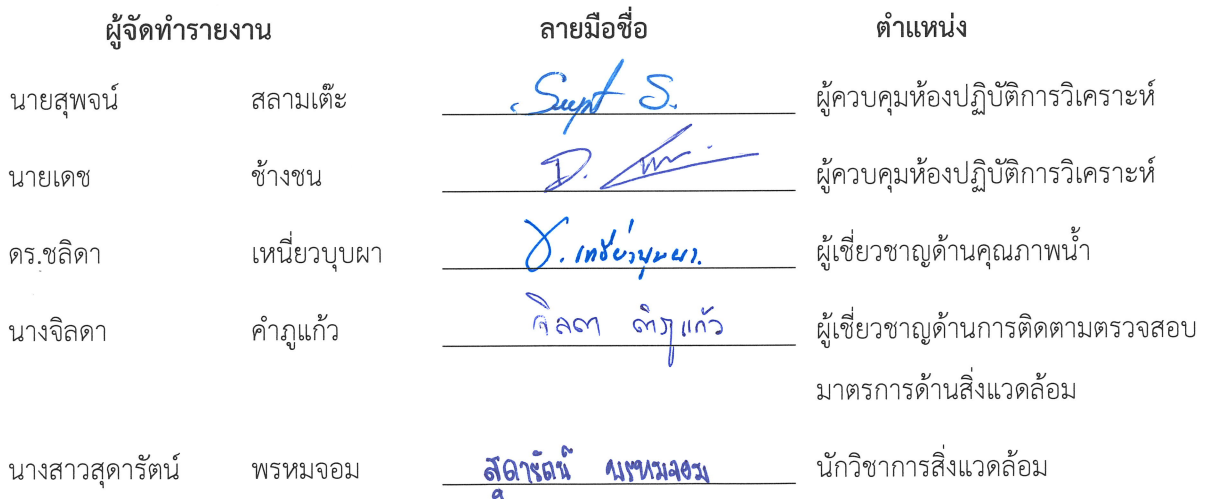 ผู้จัดทำรายงาน ลายมือชื่อ ตำแหน่ง
นายสุพจน์ สลามเต๊ะ S. ผู้ควบคุมห้องปฏิบัติการวิเคราะห์
นายเดช ช้างชน D. ผู้ควบคุมห้องปฏิบัติการวิเคราะห์
ดร.ชลิดา เหนี่ยวบุบผา ช. เหนี่ยวบุบผา ผู้เชี่ยวชาญด้านคุณภาพน้ำ
นางจิลดา คำภูแก้ว จิลดา คำภูแก้ว ผู้เชี่ยวชาญด้านการติดตามตรวจสอบ
มาตรการด้านสิ่งแวดล้อม
นางสาวสุดารัตน์ พรหมจอม สุดารัตน์ พรหมจอม นักวิชาการสิ่งแวดล้อม